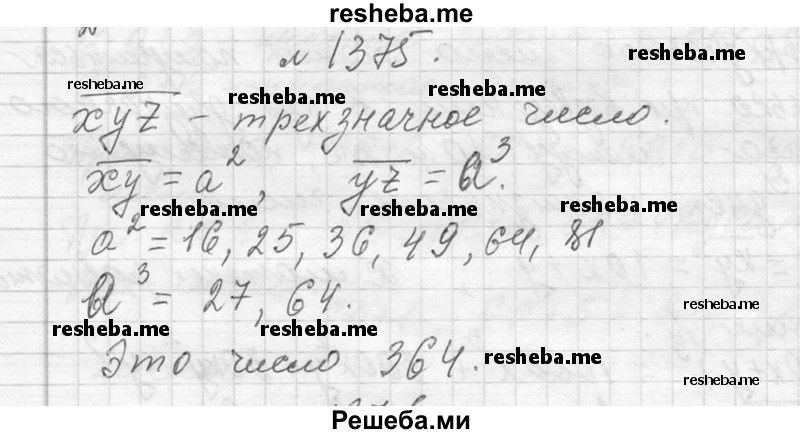 resheba.me
№ 1375.
resheba.me
resheba.me
resheba.me
resheba.me
xyz - трехзначное число.
xy = a², yz = b³.
resheba.me
resheba.me
resheba.me
a² = 16, 25, 36, 49, 64, 81
b³ = 27, 64.
resheba.me
resheba.me
resheba.me
Это число 364.
resheba.me
resheba.me
Решеба.ми